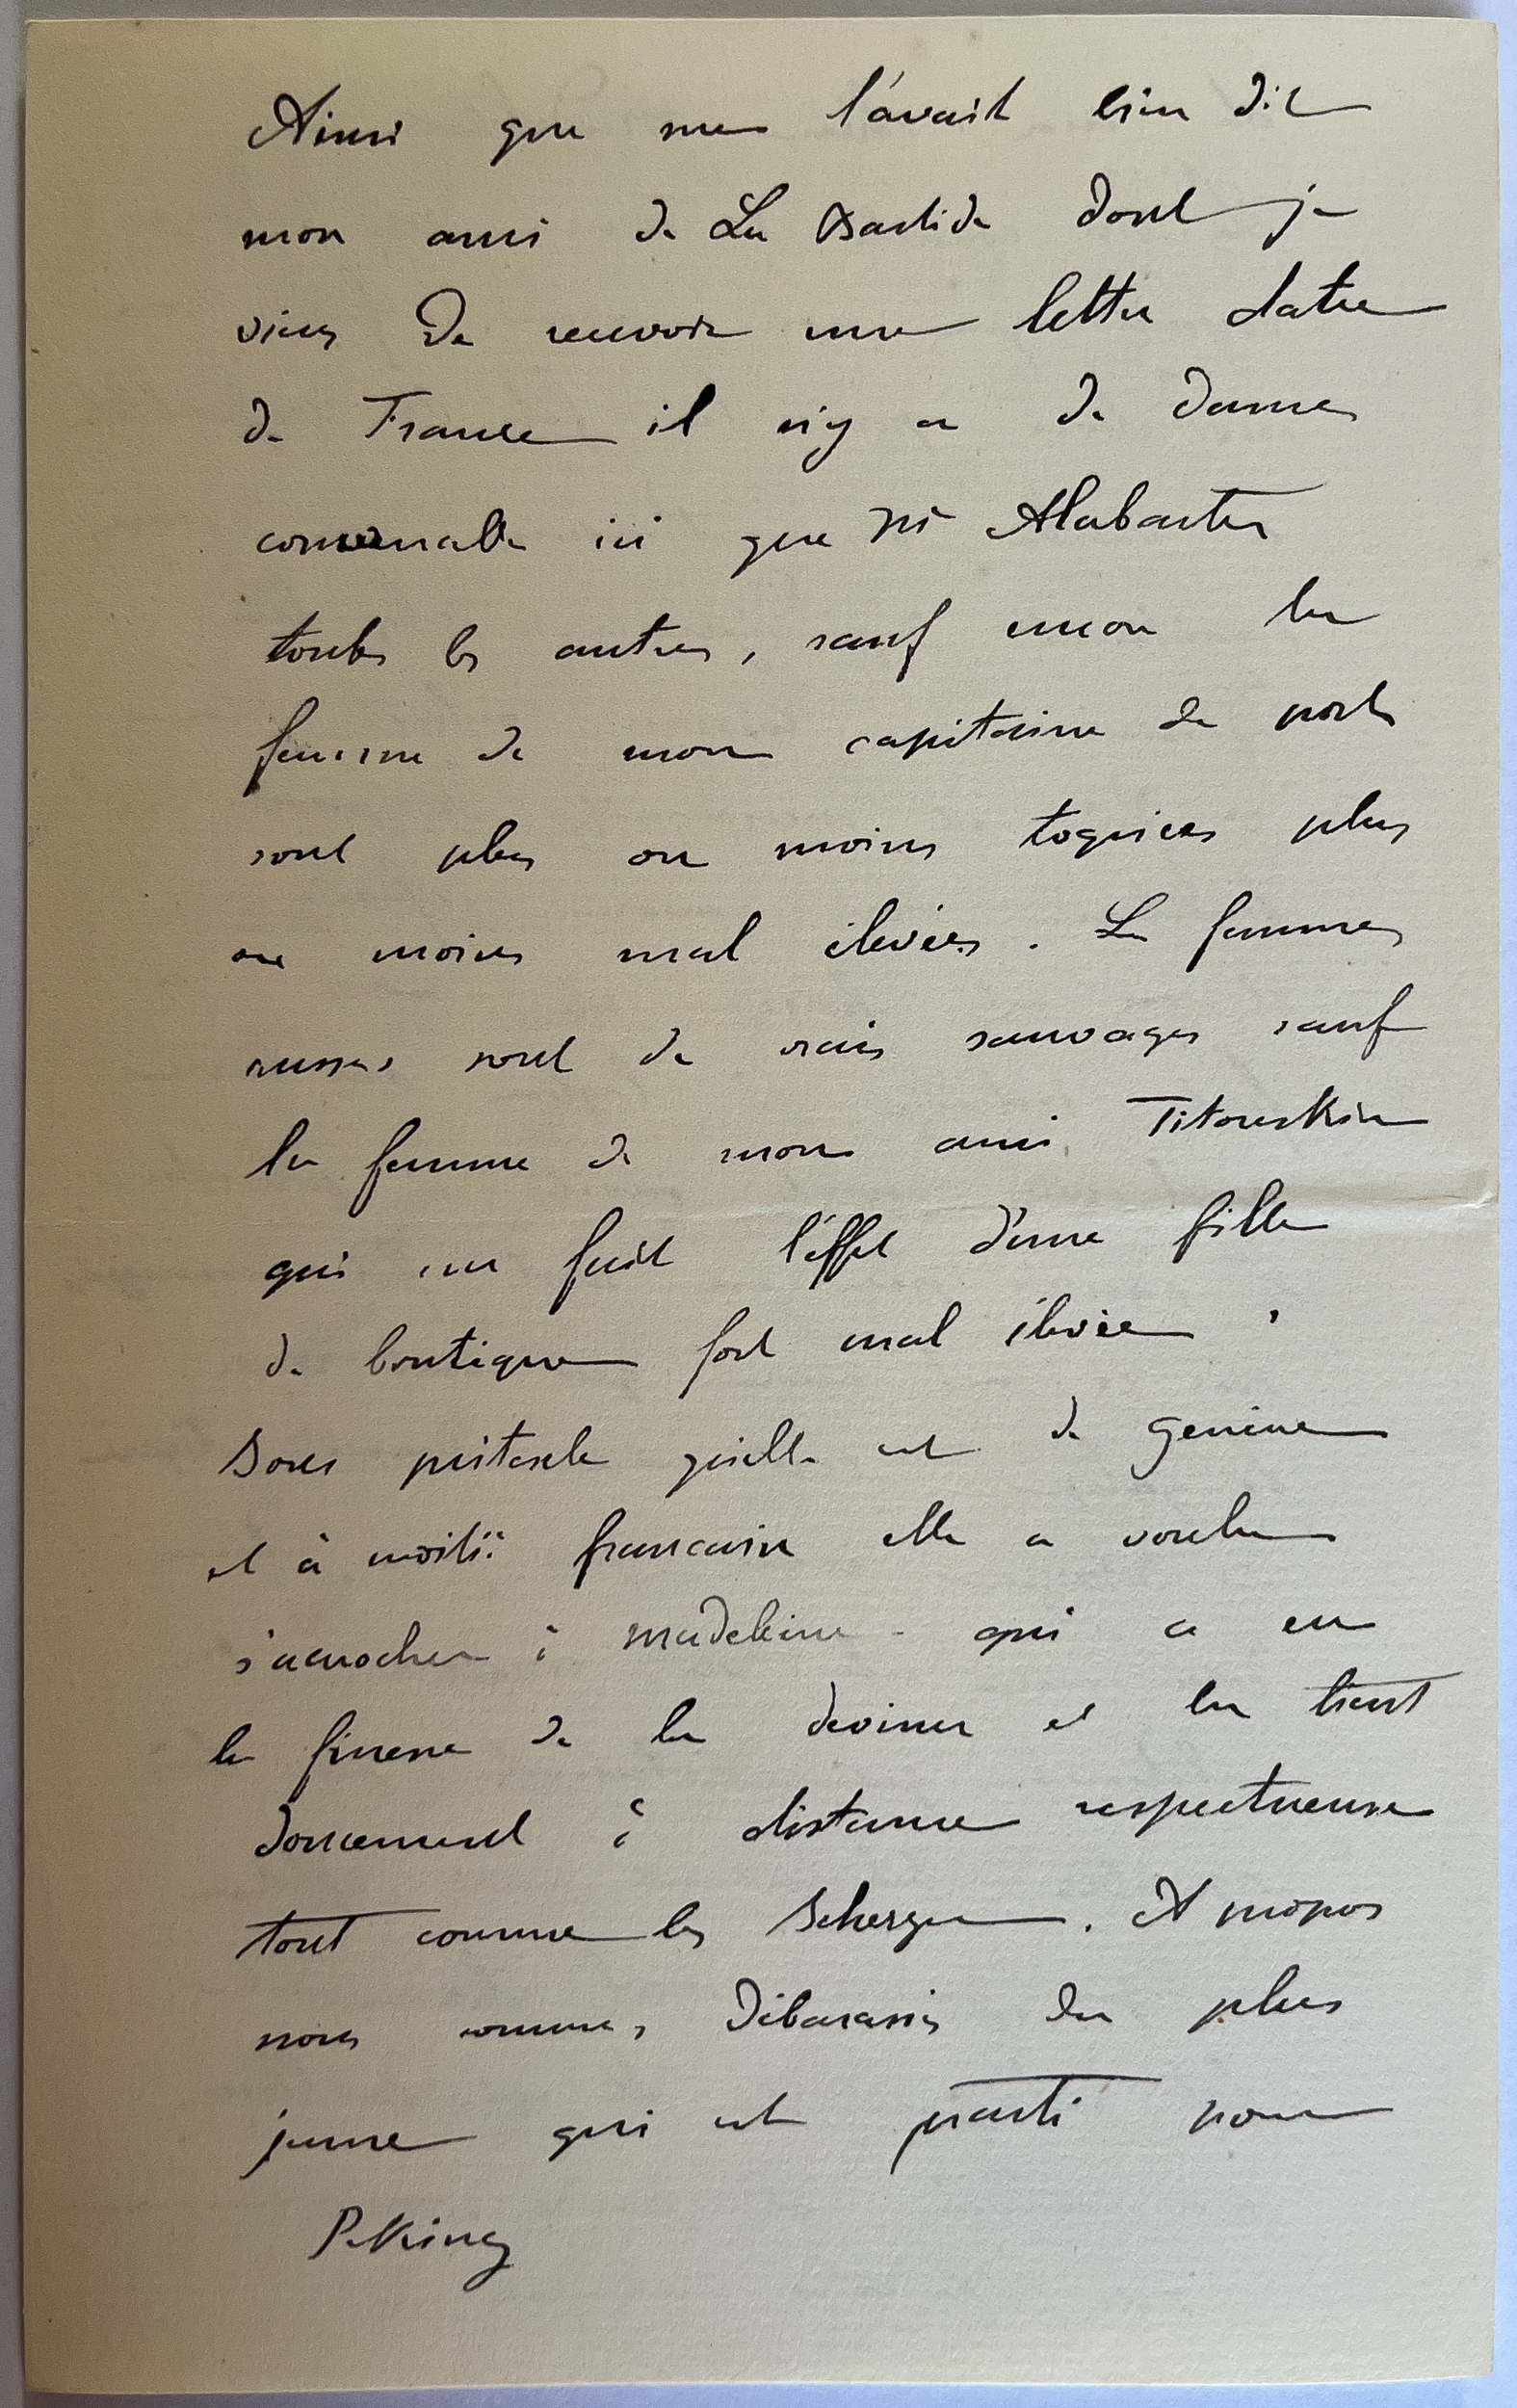 Ainsi que me l'avait bien dit
mon ami de La Bastide dont je
viens de recevoir une lettre datée
de France il n'y a de dames
convenable ici que Me Alabaster
toutes les autres, sauf encore la
femme de mon capitaine de port
sont plus ou moins toquées plus
ou moins mal élevées. Les femmes
russes sont de vrais sauvages sauf
la femme de mon ami Titoushkin
qui me fait l'effet d'une fille
de boutique fort mal élevée.
Sous prétexte qu'elle est de Genève
et à moitié francaise elle a voulu
s'accrocher à Madeleine - qui a eu
la finesse de la deviner et la tient
doucement à distance respectueuse
tout comme les Scherzer. A propos
nous sommes débarassés du plus
jeune qui est parti pour
Peking